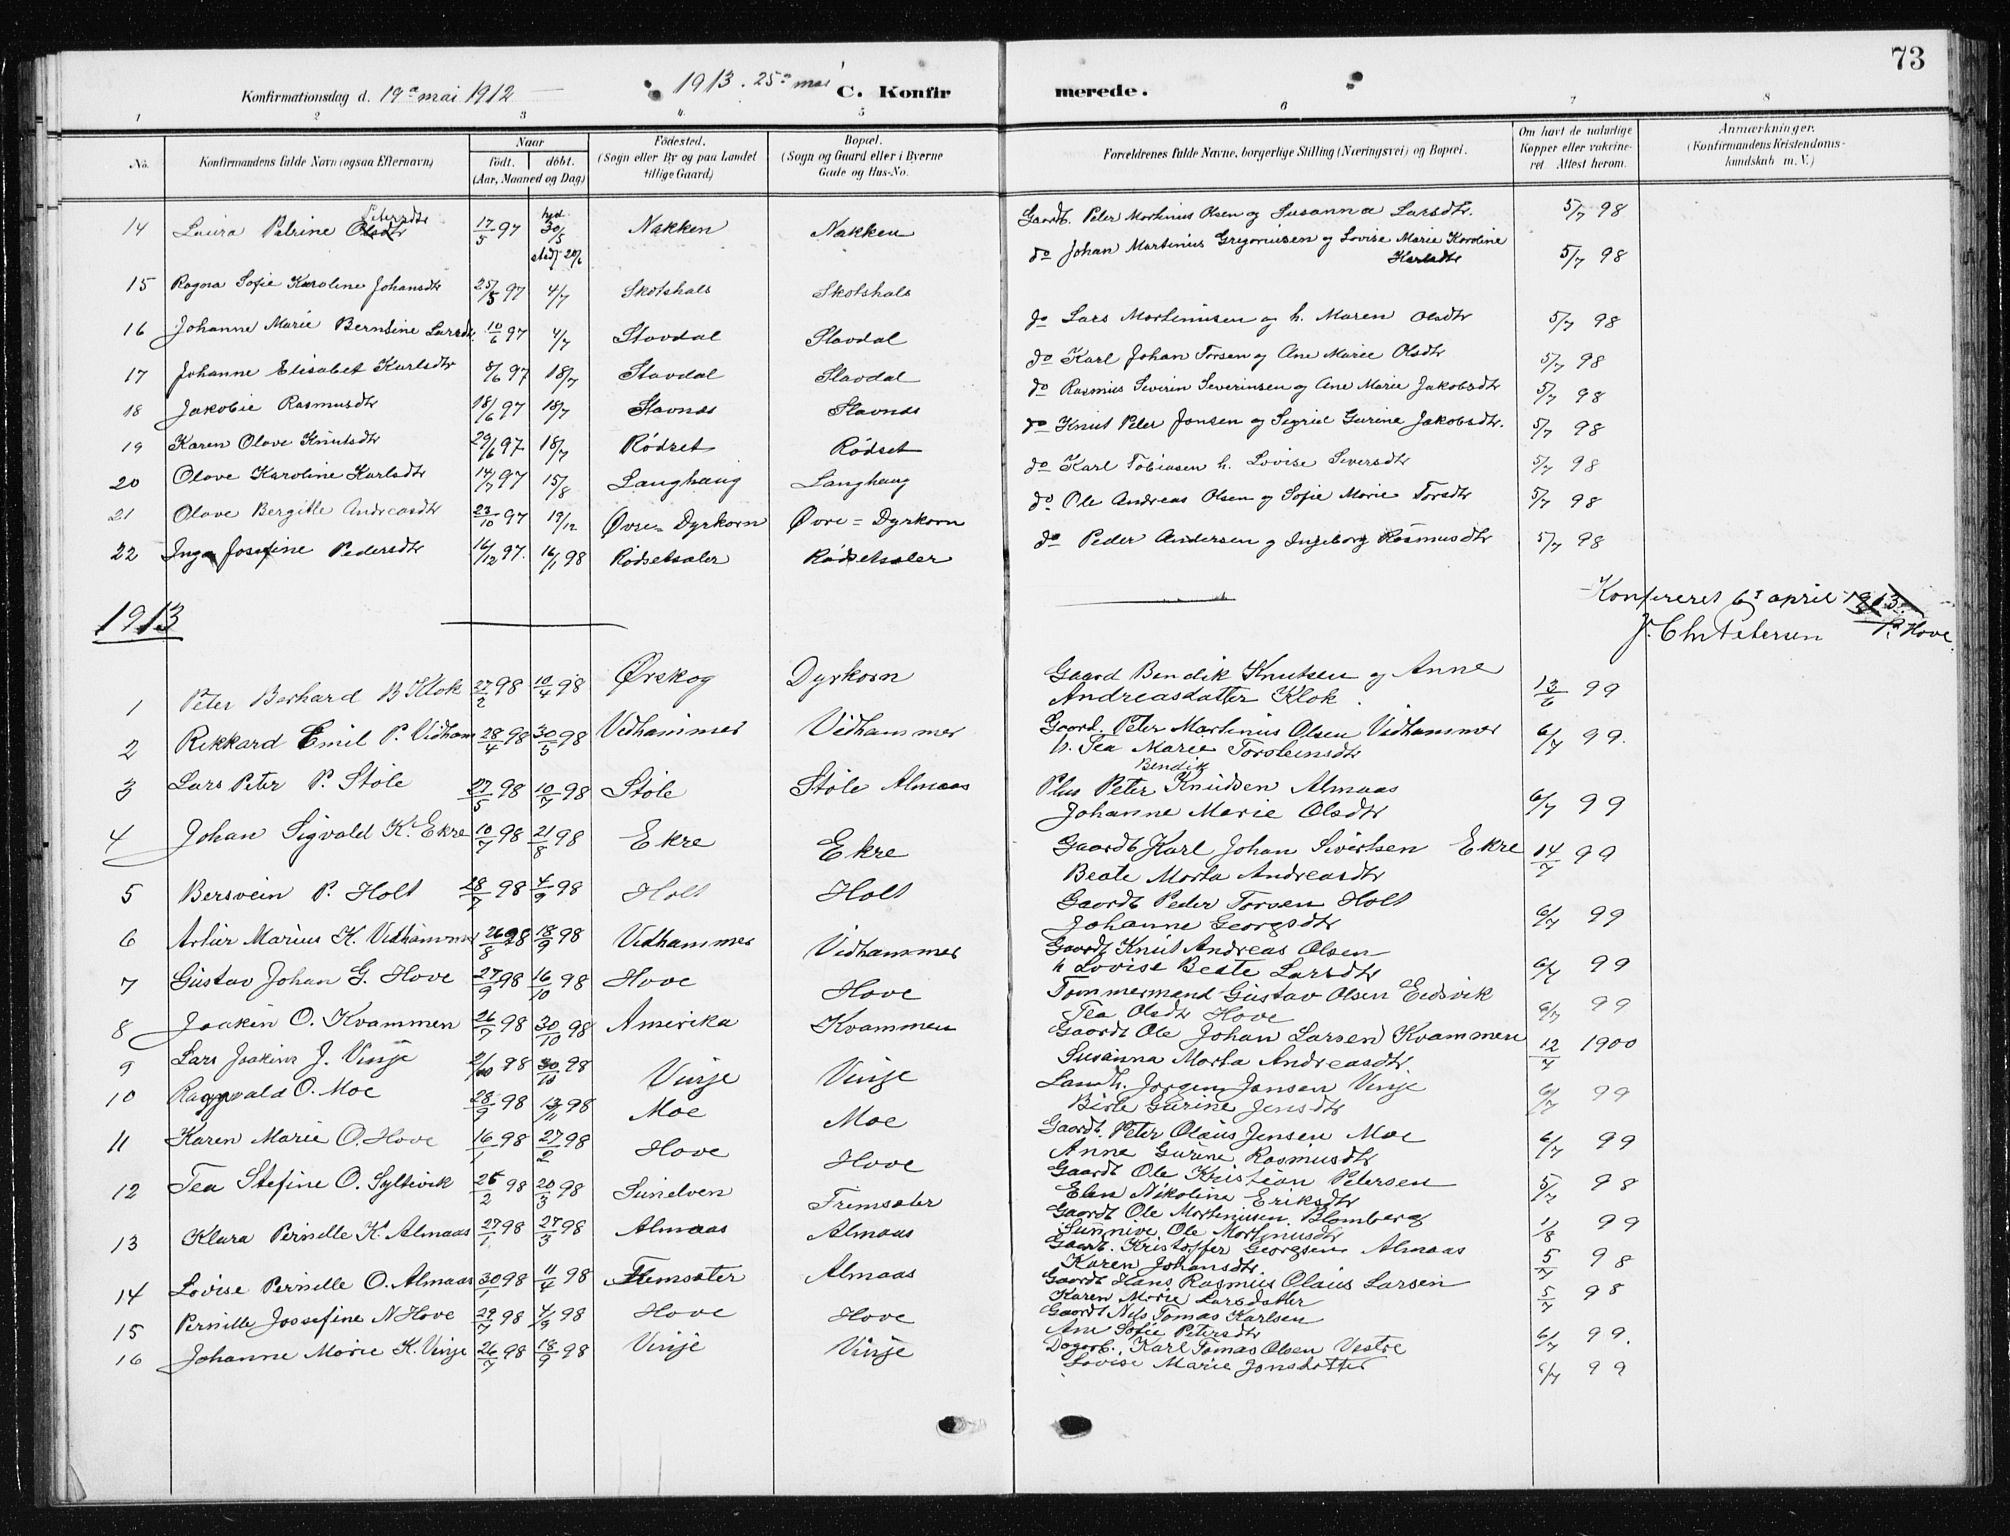 73
Konfirmationsdag d. 19de mai 1912 — 1913. 25de mai C. Konfirmerede.
1 2 3 4. 5 6 7 8
No. Konfirmandens fulde Navn (ogsaa Efternavn) Naar født. døbt. (Aar, Maaned og Dag) Fødested. (Sogn eller By og paa Landet tillige Gaard) Bopæl. (Sogn og Gaard eller i Byerne Gade og Hus-No. Forældrenes fulde Navne, borgerlige Stilling (Næringsvei) og Bopæl. Om havt de naturlige Kopper eller vakcineret. Attest herom. Anmærkninger. (Konfirmandens Kristendomskundskab m. V.)
14 Laura Petrine Olsdtr Petersdtr 17/5 97 hjd. 30/5 stadf. 20/6 Nakken Nakken Gaardb. Peter Martinus Olsen og Susanna Larsdtr. 5/7 98
15 Ragna Sofie Karoline Johansdtr 25/5 97 4/7 Skotshals Skotshals do Johan Martinus Gregoriusen og Lovise Marie Karoline Karlsdtr 5/7 98
16 Johanne Marie Berntine Larsdtr. 10/6 97 4/7 Stavdal Stavdal do Lars Martinusen og h. Maren Olsdtr 5/7 98
17 Johanne Elisabet Karlsdtr 8/6 97 18/7 Stavdal Stavdal do Karl Johan Torsen og Ane Marie Olsdtr 5/7 98
18 Jakobie Rasmusdtr 18/6 97 18/7 Stavnes Stavnes do Rasmus Severin Severinsen og Ane Marie Jakobsdtr 5/7 98
19 Karen Olave Knutsdtr 29/6 97 18/7 Rødset Rødset do Knut Peter Jonsen og Sigrid Gurine Jakobsdtr. 5/7 98
20 Olave Karoline Karlsdtr 14/7 97 15/8 Langhaug Langhaug do Karl Tobiasen h. Lovise Siversdtr 5/7 98
21 Olave Bergitte Andreasdtr 23/10 97 19/12 Øvre-Dyrkorn Øvre-Dyrkorn do Ole Andreas Olsen og Sofie Marie Torsdtr 5/7 98
22 Inga Josefine Pedersdtr 16/12 97. 16/1 98 Rødsetsæter Rødsetsæter do Peder Andersen og Ingeborg Rasmusdtr 5/7 98
Konfereret 6t april 1913.
1913
J. Chr Petersen P. Hove
1 Peter Berhard B Klok 27/2 98 10/4 98 Ørskog Dyrkorn Gaard Bendik Knutsen og Anne Andreasdatter Klok. 13/6 99
2 Rikkard Emil P. Vidham 28/4 98 30/5 98 Vidhammer Vidhammer Gaard. Peter Martinus Olsen Vidhammer h. Tea Marie Torsteinsdtr 6/7 99.
3 Lars Peter P. Støle 27/5 98 10/7 98 Støle Støle Almaas Plus Peter Bendik Knudsen Almaas Johanne Marie Olsdtr 6/7 99
4 Johan Sigvald K. Ekre 10/7 98 21/8 98 Ekre Ekre Gaardb Karl Johan Sivertsen Ekre Beate Marta Andreasdtr 14/7 99
5 Bersvein P. Holt 28/7 98 4/9 98 Holt Holt Gaardb Peder Torsen Holt Johanne Georgsdtr 6/7 99
6 Artur Marius K. Vidhammer 26/8 98 18/9 98 Vidhammer Vidhammer Gaardb Knut Andreas Olsen h Lovise Beate Larsdtr 6/7 99
7 Gustav Johan G. Hove 27/9 98 16/10 98 Hove Hove Tømmermand Gustav Olsen Eidsvik Tea Olsdtr Hove 6/7 99
8 Joakin O. Kvammen 26/7 98 30/10 98 Amerika Kvammen Gaardb Ole Johan Larsen Kvammen Susanna Marta Andreasdtr. 12/7 1900
9 Lars Joakim J. Vinje 2/10 98 30/10 98 Vinje Vinje Landh. Jørgen Jansen Vinje Birte Gurine Jensdtr 6/7 99
10 Ragnvald O. Moe 28/9 98 13/11 98 Moe Moe Gaardb. Peter Olaus Jensen Moe Anne Gurine Rasmusdtr 6/7 99
11 Karen Marie O. Hove 16/1 98 27/2 98 Hove Hove Gaardb Ole Kristian Petersen Elen Nikoline Eriksdtr 5/7 98
12 Tea Stefine O. Syltevik 25/2 98 20/3 98 Sunelven Fremsæter Gaardb Ole Martinusen Blomberg Sunnive Ole Martinusdtr 1/8 99
13 Klara Pernille K. Almaas 27/1 98 27/3 98 Almaas Almaas Gaardb. Kristoffer Georgsen Almaas Karen Johansdtr. 5/7 98
14 Lovise Pernille O. Almaas 30/1 98 11/4 98 Fremsæter Almaas Gaardb Hans Rasmus Olaus Larsen Karen Marie Larsdatter 5/7 98
15 Pernille Jossefine N Hove 29/7 98 4/9 98 Hove Hove Gaardb Nils Tomas Karlsen Ane Sofie Petersdtr 6/7 99.
16 Johanne Marie K. Vinje 26/7 98 18/9 98 Vinje Vinje Dagarb. Karl Tomas Olsen Vestre Lovise Marie Jonsdatter 6/7 99